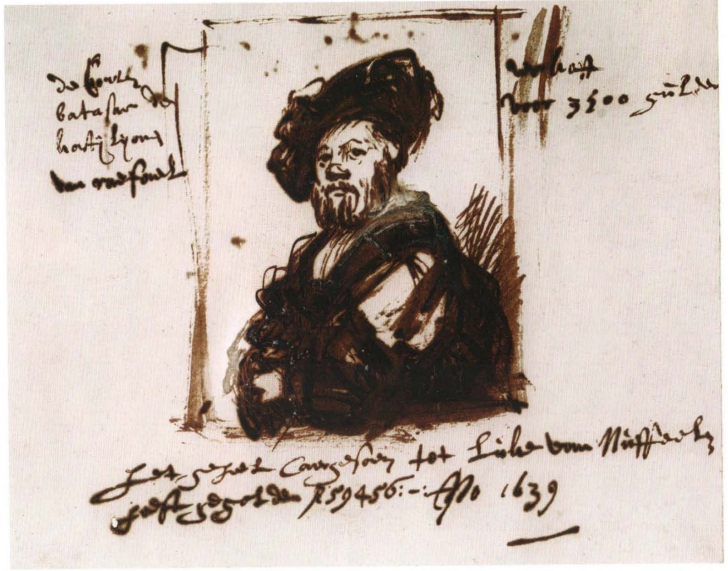 de Conte
batasar de
kastijlyone
van raefael
verkoft
voor 3500 gulden
het geheel caergesoen tot Luke van Nuffeelen
heeft gegolden f 59456:- Ano 1639